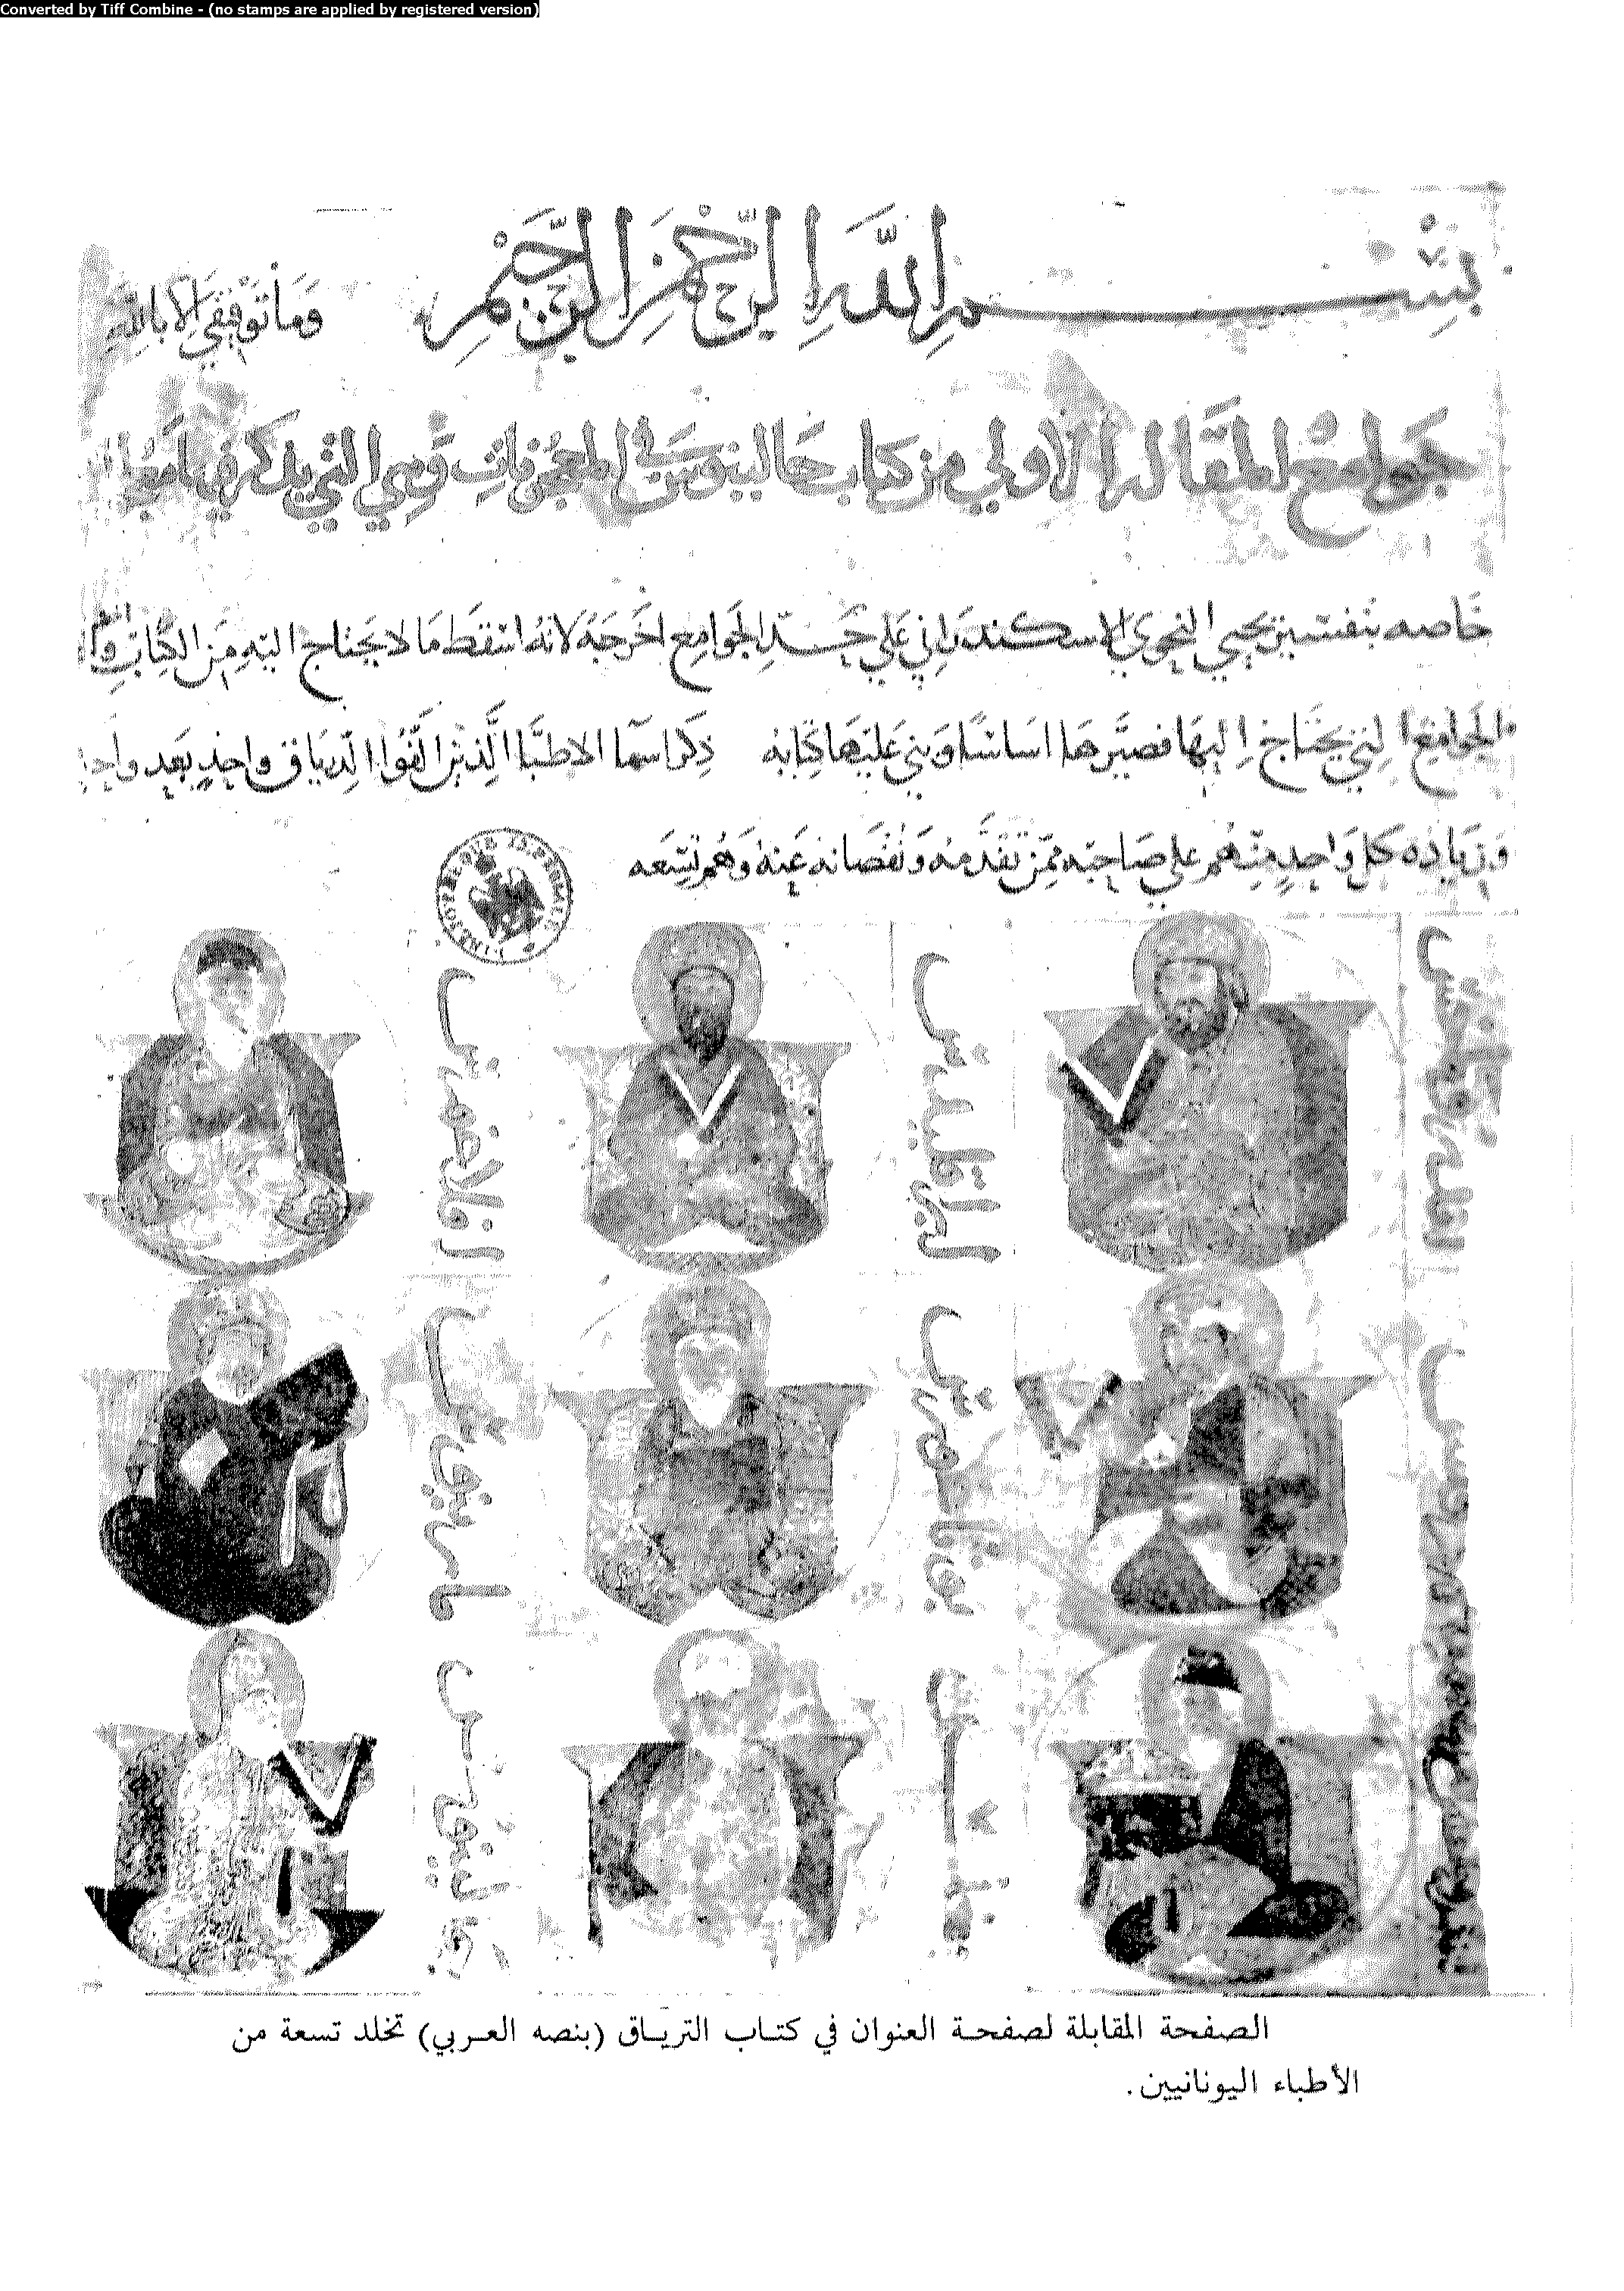 Converted by Tiff Combine - (no stamps are applied by registered version)
بسم الله الرحمن الرحيم وما توفيقي الا بالله
جوامع المقاله الاولي من كتاب جالينوس في المعجونات وهي التي يذكر فيها
خاصه بتفسير يحيي النحوي الاسكندراني علي الجوامع اخرجه لانه اسقط ما لا يحتاج اليه من الكتاب
الجوامع التي يحتاج اليها فصيرها اساسا وبني عليها كتابه ذكر اسما الاطبا الذين الفوا الدرياق واحد بعد واحد
وزياده كل واحد منهم علي صاحبه ممن تقدمه ونقصانه عنه وهم تسعه
اندروماخس
ابراقليدس
افلاغورس
مارينوس
مغنس
جالينوس
الصفحة المقابلة لصفحة العنوان في كتاب الترياق (بنصه العربي) تخلد تسعة من
الأطباء اليونانيين.